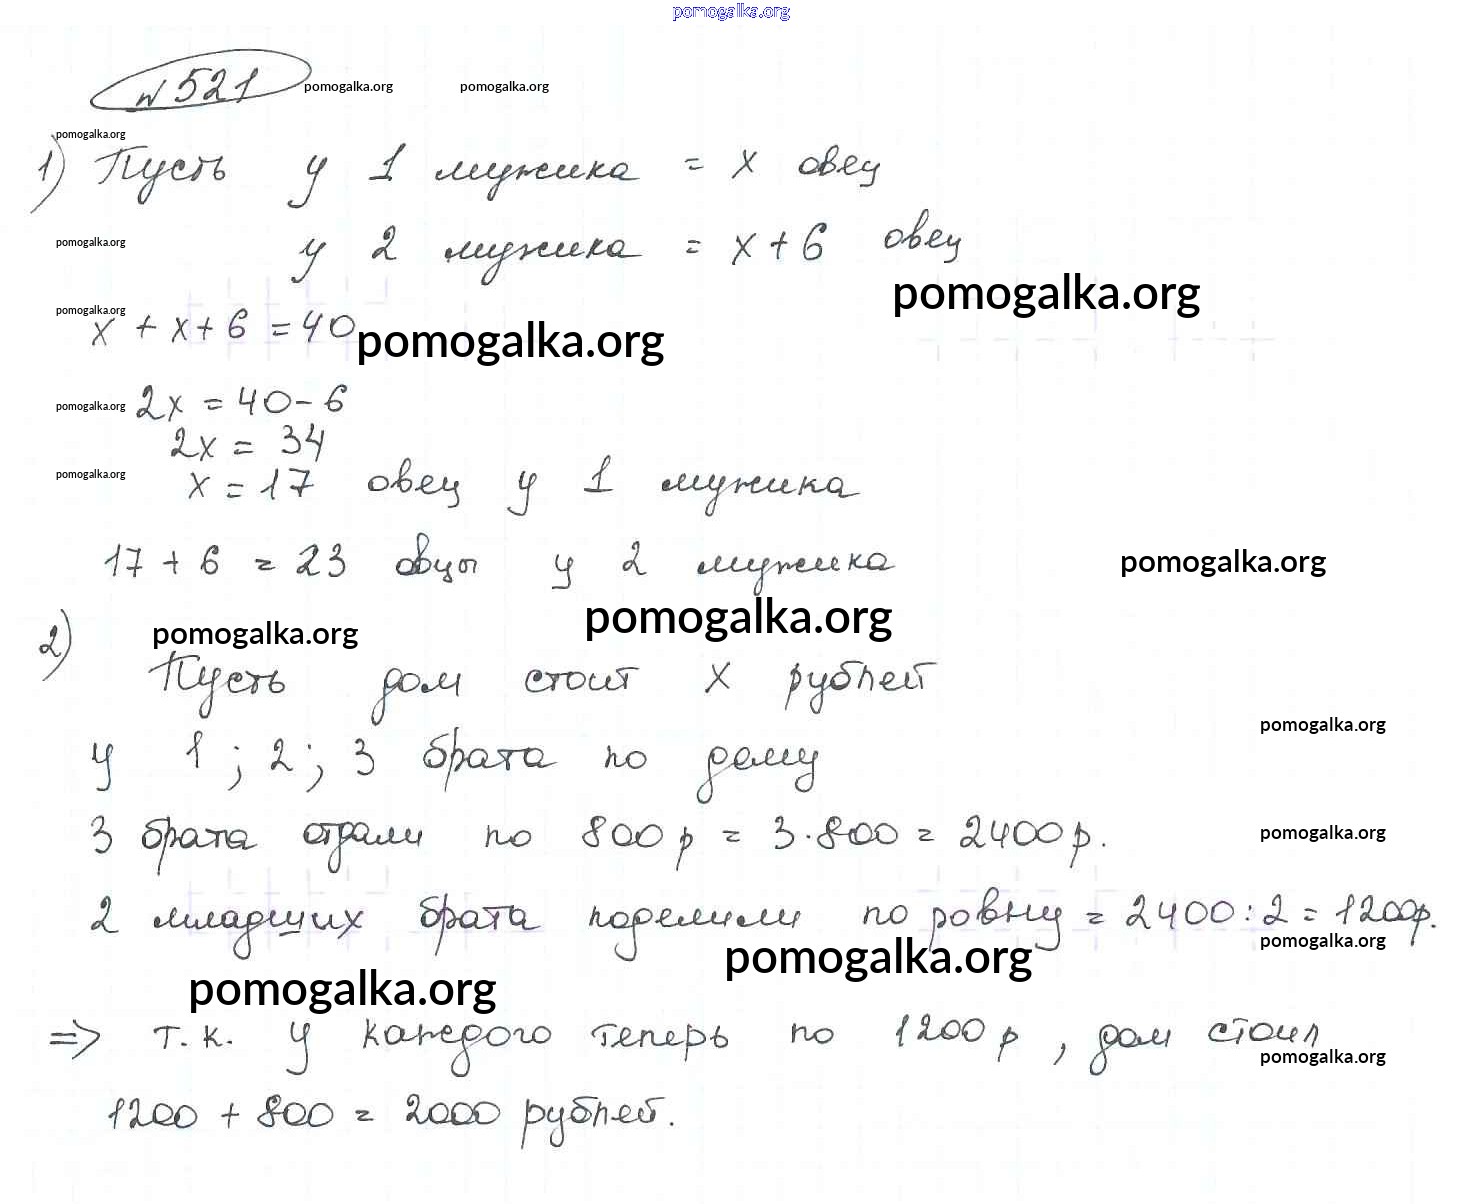 pomogalka.org
№ 521 pomogalka.org pomogalka.org
pomogalka.org
1) Пусть у 1 мужика = x овец
pomogalka.org у 2 мужика = x + 6 овец
pomogalka.org
pomogalka.org
x + x + 6 = 40 pomogalka.org
pomogalka.org 2x = 40 - 6
2x = 34
pomogalka.org x = 17 овец у 1 мужика
17 + 6 = 23 овцы у 2 мужика pomogalka.org
pomogalka.org
2) pomogalka.org
Пусть дом стоит x рублей
pomogalka.org
у 1; 2; 3 брата по дому
3 брата отдали по 800 р = 3·800 = 2400 р. pomogalka.org
2 младших брата поделили по ровну = 2400 : 2 = 1200р.
pomogalka.org pomogalka.org
pomogalka.org
=> т.к. у каждого теперь по 1200 р, дом стоил
pomogalka.org
1200 + 800 = 2000 рублей.